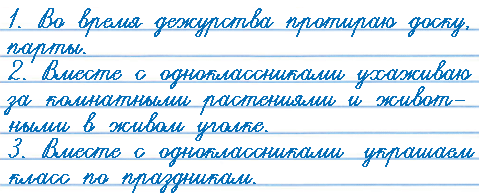 1. Во время дежурства протираю доску,
парты.
2. Вместе с одноклассниками ухаживаю
за комнатными растениями и живот-
ными в живом уголке.
3. Вместе с одноклассниками украшаем
класс по праздникам.